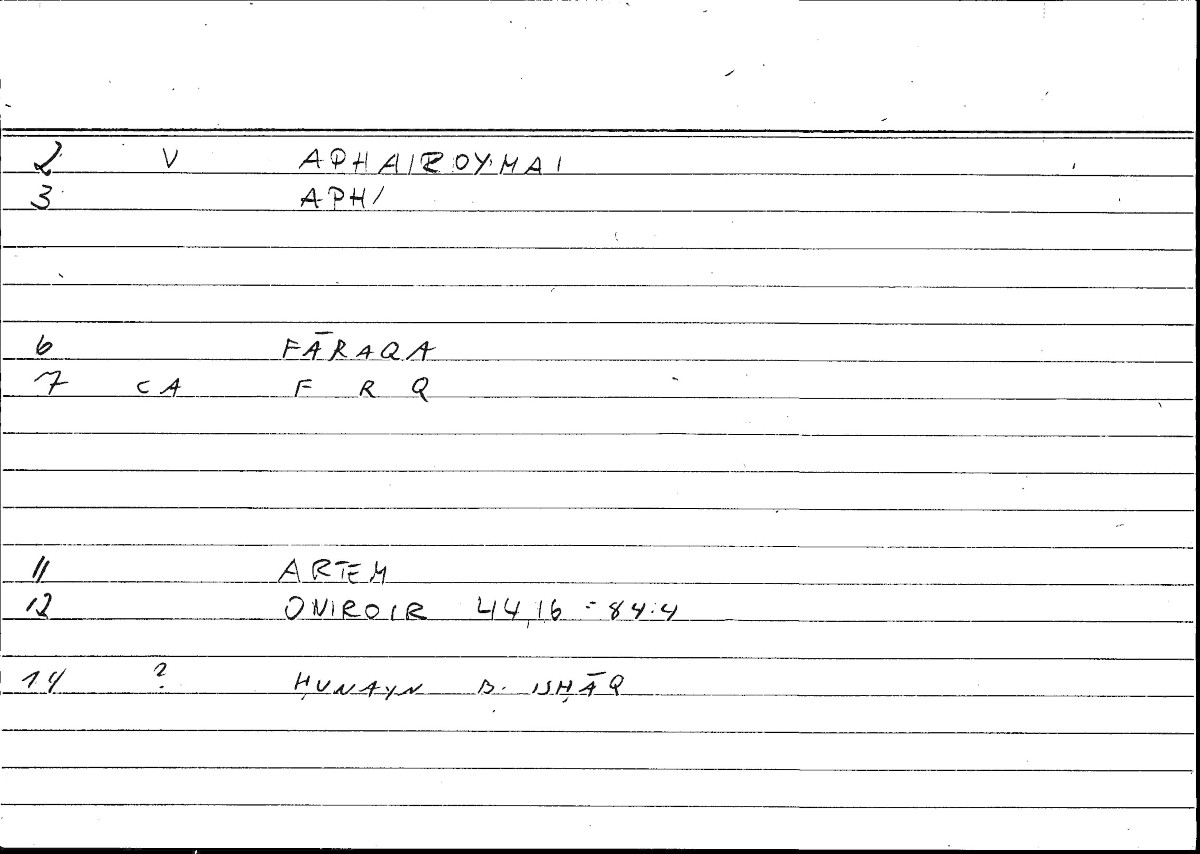 2 V APHAIROYMAI
3 APH/
6 FĀRAQA
7 CA F R Q
11 ARTEM
12 ONIROCR 44,16 = 84.4
14 ? ḤUNAYN B. ISḤĀQ